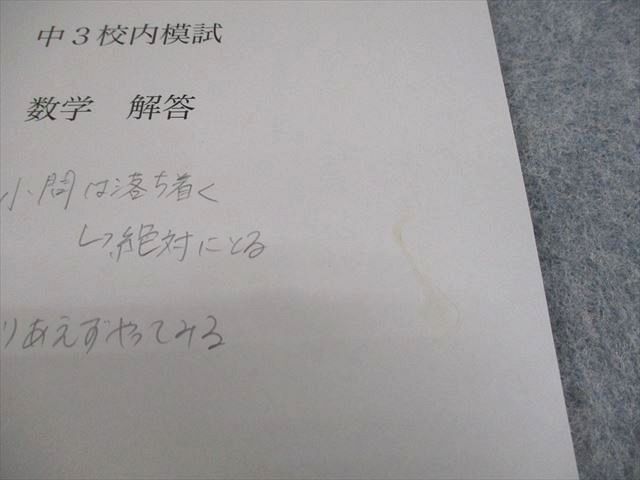 中３校内模試
数学　解答
小問は落ち着く
↳絶対にとる
りあえずやってみる